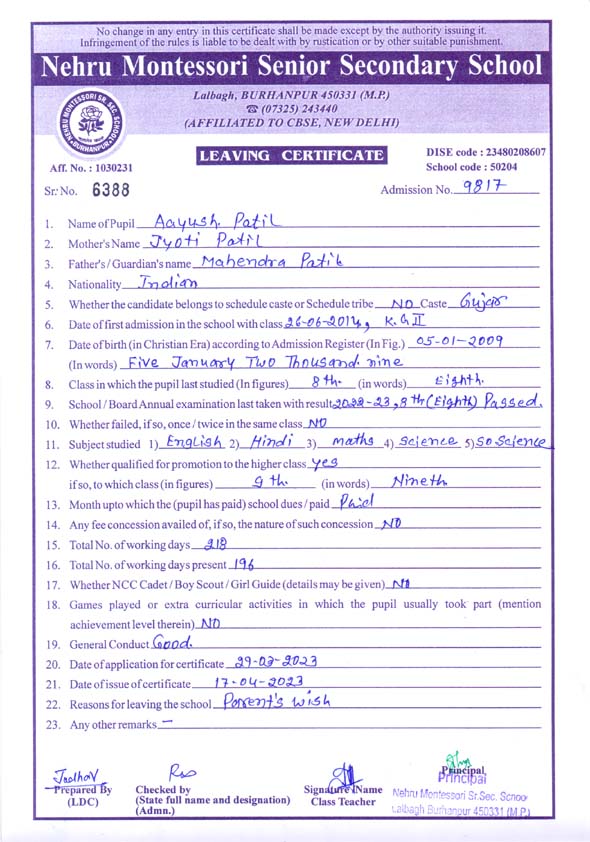 No change in any entry in this certificate shall be made except by the authority issuing it.
Infringement of the rules is liable to be dealt with by rustication or by other suitable punishment.
Nehru Montessori Senior Secondary School
Lalbagh, BURHANPUR 450331 (M.P.)
☎ (07325) 243440
(AFFILIATED TO CBSE, NEW DELHI)
NEHRU MONTESSORI SR. SEC. SCHOOL
BURHANPUR
LEAVING CERTIFICATE
DISE code : 23480208607
Aff. No. : 1030231 School code : 50204
Sr. No. 6388 Admission No. 9817
1. Name of Pupil Aayush Patil
2. Mother's Name Jyoti Patil
3. Father's / Guardian's name Mahendra Patil
4. Nationality Indian
5. Whether the candidate belongs to schedule caste or Schedule tribe NO Caste Gujar
6. Date of first admission in the school with class 26-06-2014, K.G II
7. Date of birth (in Christian Era) according to Admission Register (In Fig.) 05-01-2009
(In words) Five January Two Thousand nine
8. Class in which the pupil last studied (In figures) 8th. (in words) Eighth.
9. School / Board Annual examination last taken with result 2022-23, 8th (Eighth) Passed.
10. Whether failed, if so, once / twice in the same class NO
11. Subject studied 1) English 2) Hindi 3) maths 4) science 5) SO Science
12. Whether qualified for promotion to the higher class yes
if so, to which class (in figures) 9th. (in words) Nineth
13. Month upto which the (pupil has paid) school dues / paid Paid
14. Any fee concession availed of, if so, the nature of such concession NO
15. Total No. of working days 218
16. Total No. of working days present 196
17. Whether NCC Cadet / Boy Scout / Girl Guide (details may be given) NO
18. Games played or extra curricular activities in which the pupil usually took part (mention
achievement level therein) NO
19. General Conduct Good.
20. Date of application for certificate 29-03-2023
21. Date of issue of certificate 17-04-2023
22. Reasons for leaving the school Parent's wish
23. Any other remarks —
Prepared By Checked by Signature Name Principal
(LDC) (State full name and designation) Class Teacher
(Admn.)
Principal
Nehru Montessori Sr.Sec. School
Lalbagh Burhanpur 450331 (M.P.)